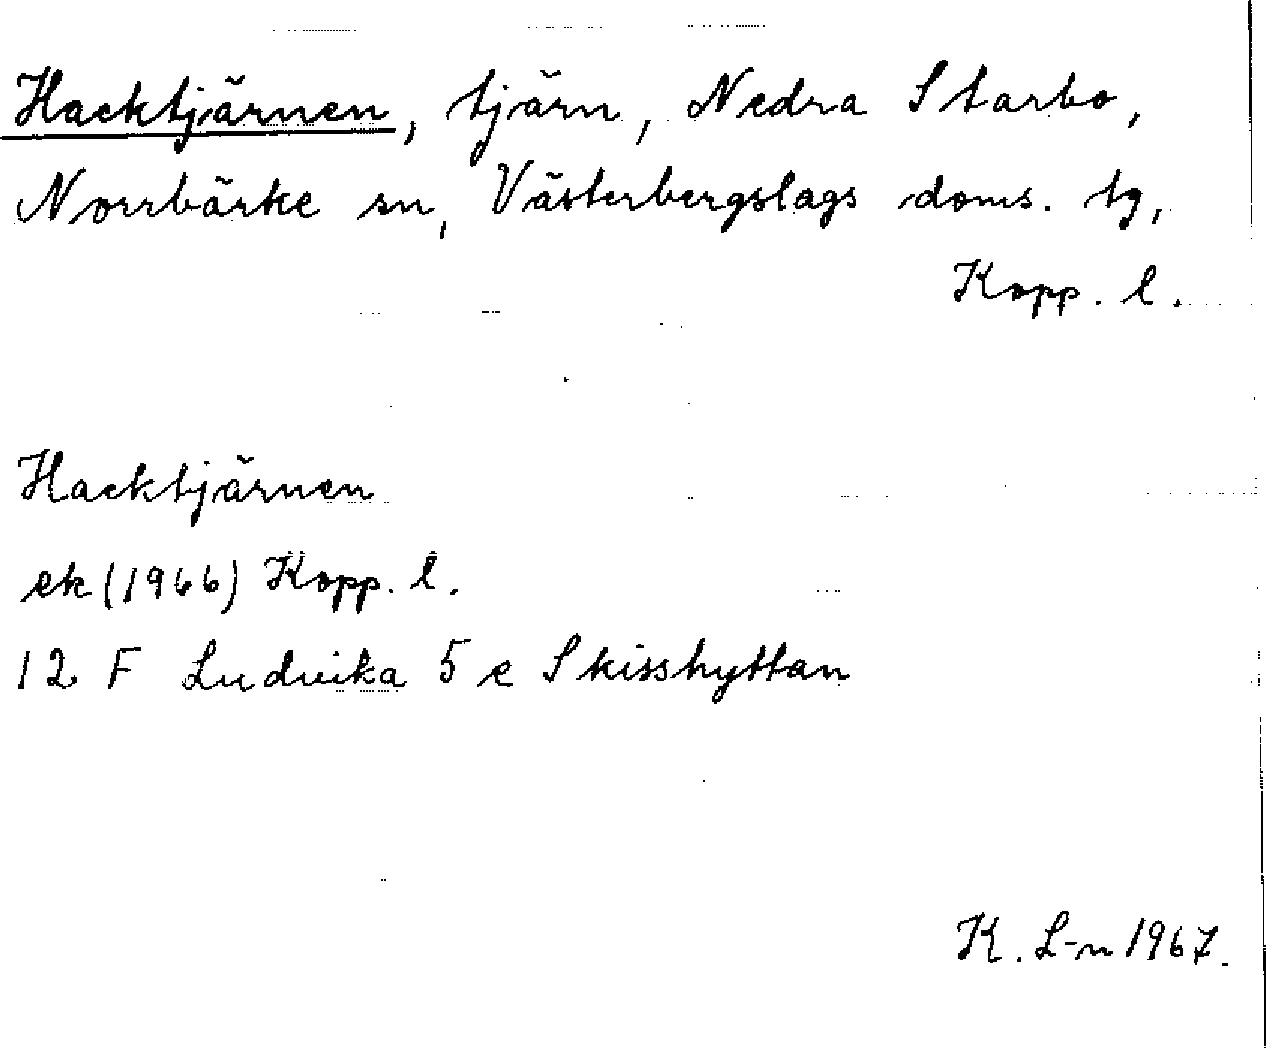 Hacktjärnen, tjärn, Nedra Starbo,
Norrbärke sn, Västerbergslags doms. tg,
Kopp. l.
Hacktjärnen
ek (1966) Kopp. l.
12 F Ludvika 5 e Skisshyttan
K. L-n 1967.